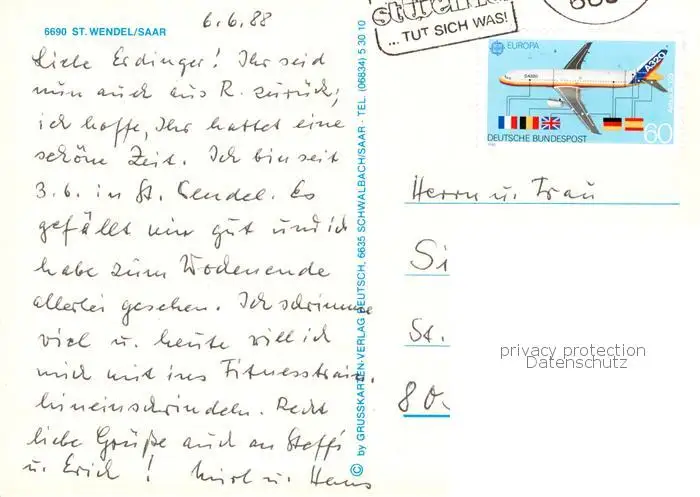 6.6.88
6690 ST. WENDEL/SAAR
Liebe Erdinger! Ihr seid
nun auch aus R. zurück;
ich hoffe, Ihr hattet eine
schöne Zeit. Ich bin seit
3.6. in St. Wendel. Es
gefällt mir gut und ich
habe zum Wochenende
allerlei gesehen. Ich schwimme
viel u. heute will ich
mich mit ins Fitnesstrain.
hineinschwindeln. Recht
liebe Grüße auch an Steffi
u. Erich!
© by GRUSSKARTEN-VERLAG DEUTSCH, 6635 SCHWALBACH/SAAR · TEL. (06834) 5 30 10
... TUT SICH WAS!
EUROPA
A320
DEUTSCHE BUNDESPOST
60
Herrn u. Frau
Si
St.
80
privacy protection
Datenschutz